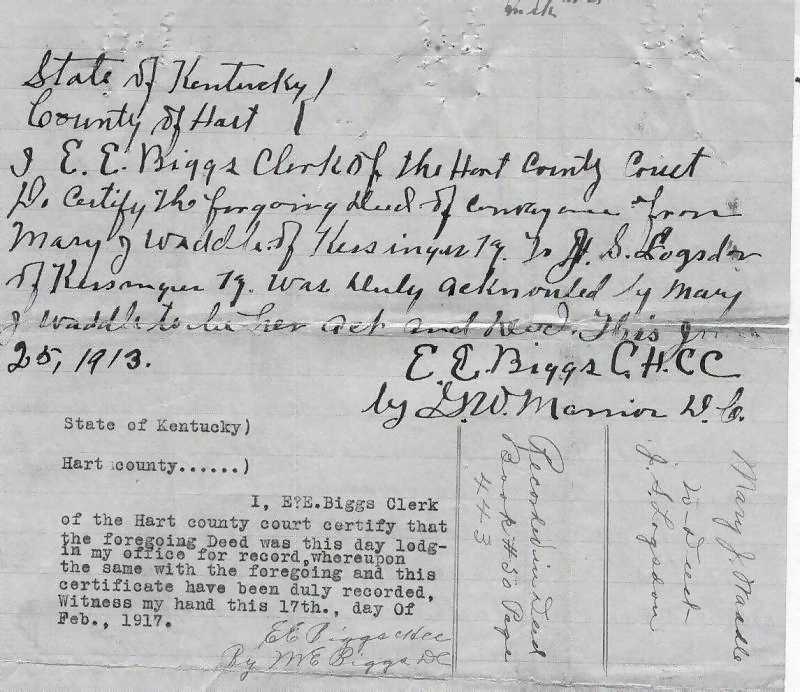 State of Kentucky)
County of Hart )
I E. E. Biggs Clerk of the Hart County Court
Do certify the forgoing deed of convayance from
Mary J Waddle of Kessinger Ky. To J. S. Logsdon
of Kessinger Ky. was duly acknowled by Mary
J Waddle to be her act and deed. This
25, 1913.
E. E. Biggs C.H.C.C
by G.W. Manior D.C.
State of Kentucky)
Hart county......)
I, E?E.Biggs Clerk
of the Hart county court certify that
the foregoing Deed was this day lodg-
in my office for record,whereupon
the same with the foregoing and this
certificate have been duly recorded,
Witness my hand this 17th., day Of
Feb., 1917.
EE Biggs CHCC
By ME Biggs DC
Recorded in Deed
Book # 30 Page
443
Mary J. Waddle
To Deed
J. S. Logsdon